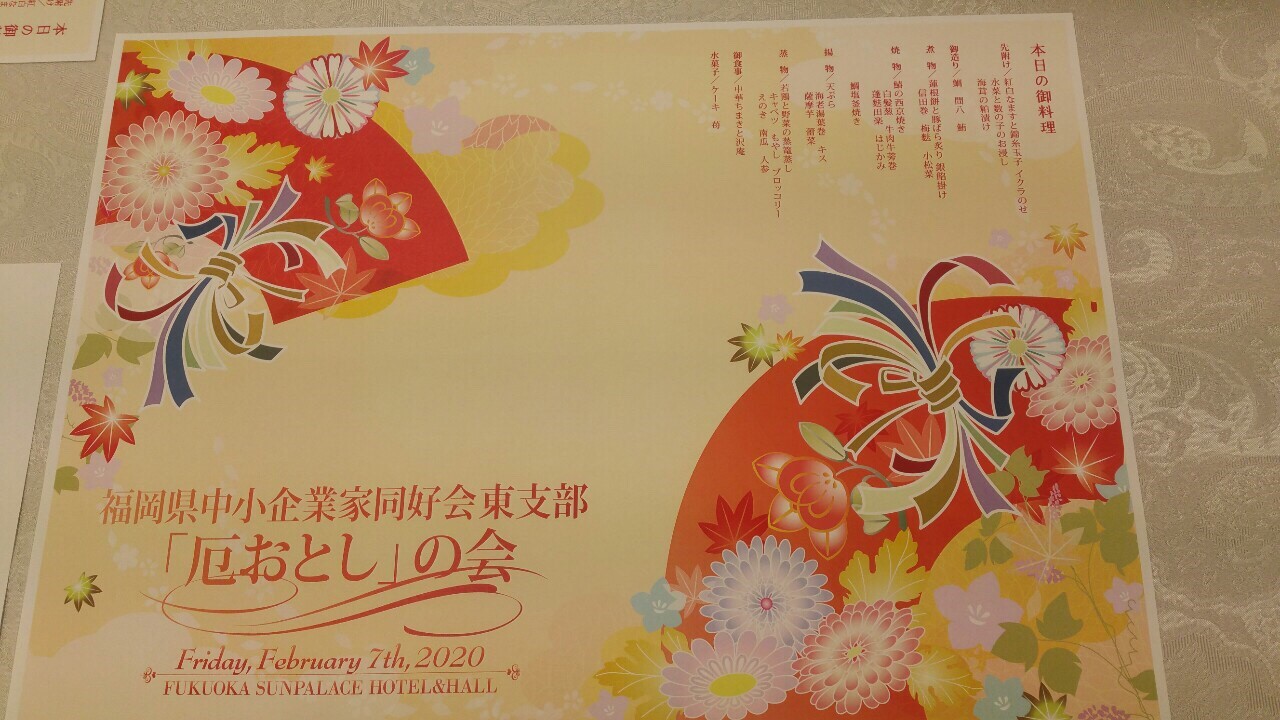 本日の御料理
先附け／紅白なますと錦糸玉子 イクラのせ
水菜と数の子のお浸し
海茸の粕漬け
御造り／鯛 間八 鮪
煮 物／蓮根餅と豚ばら炙り 銀餡掛け
信田巻 梅麩 小松菜
焼 物／鰆の西京焼き
白髪葱 牛肉牛蒡巻
蓬麩田楽 はじかみ
鯛塩釜焼き
揚 物／天ぷら
海老湯葉巻 キス
薩摩芋 蕾菜
蒸 物／若鶏と野菜の蒸籠蒸し
キャベツ もやし ブロッコリー
えのき 南瓜 人参
御食事／中華ちまきと沢庵
水菓子／ケーキ 苺
福岡県中小企業家同好会東支部
「厄おとし」の会
Friday, February 7th, 2020
FUKUOKA SUNPALACE HOTEL&HALL
本日の御